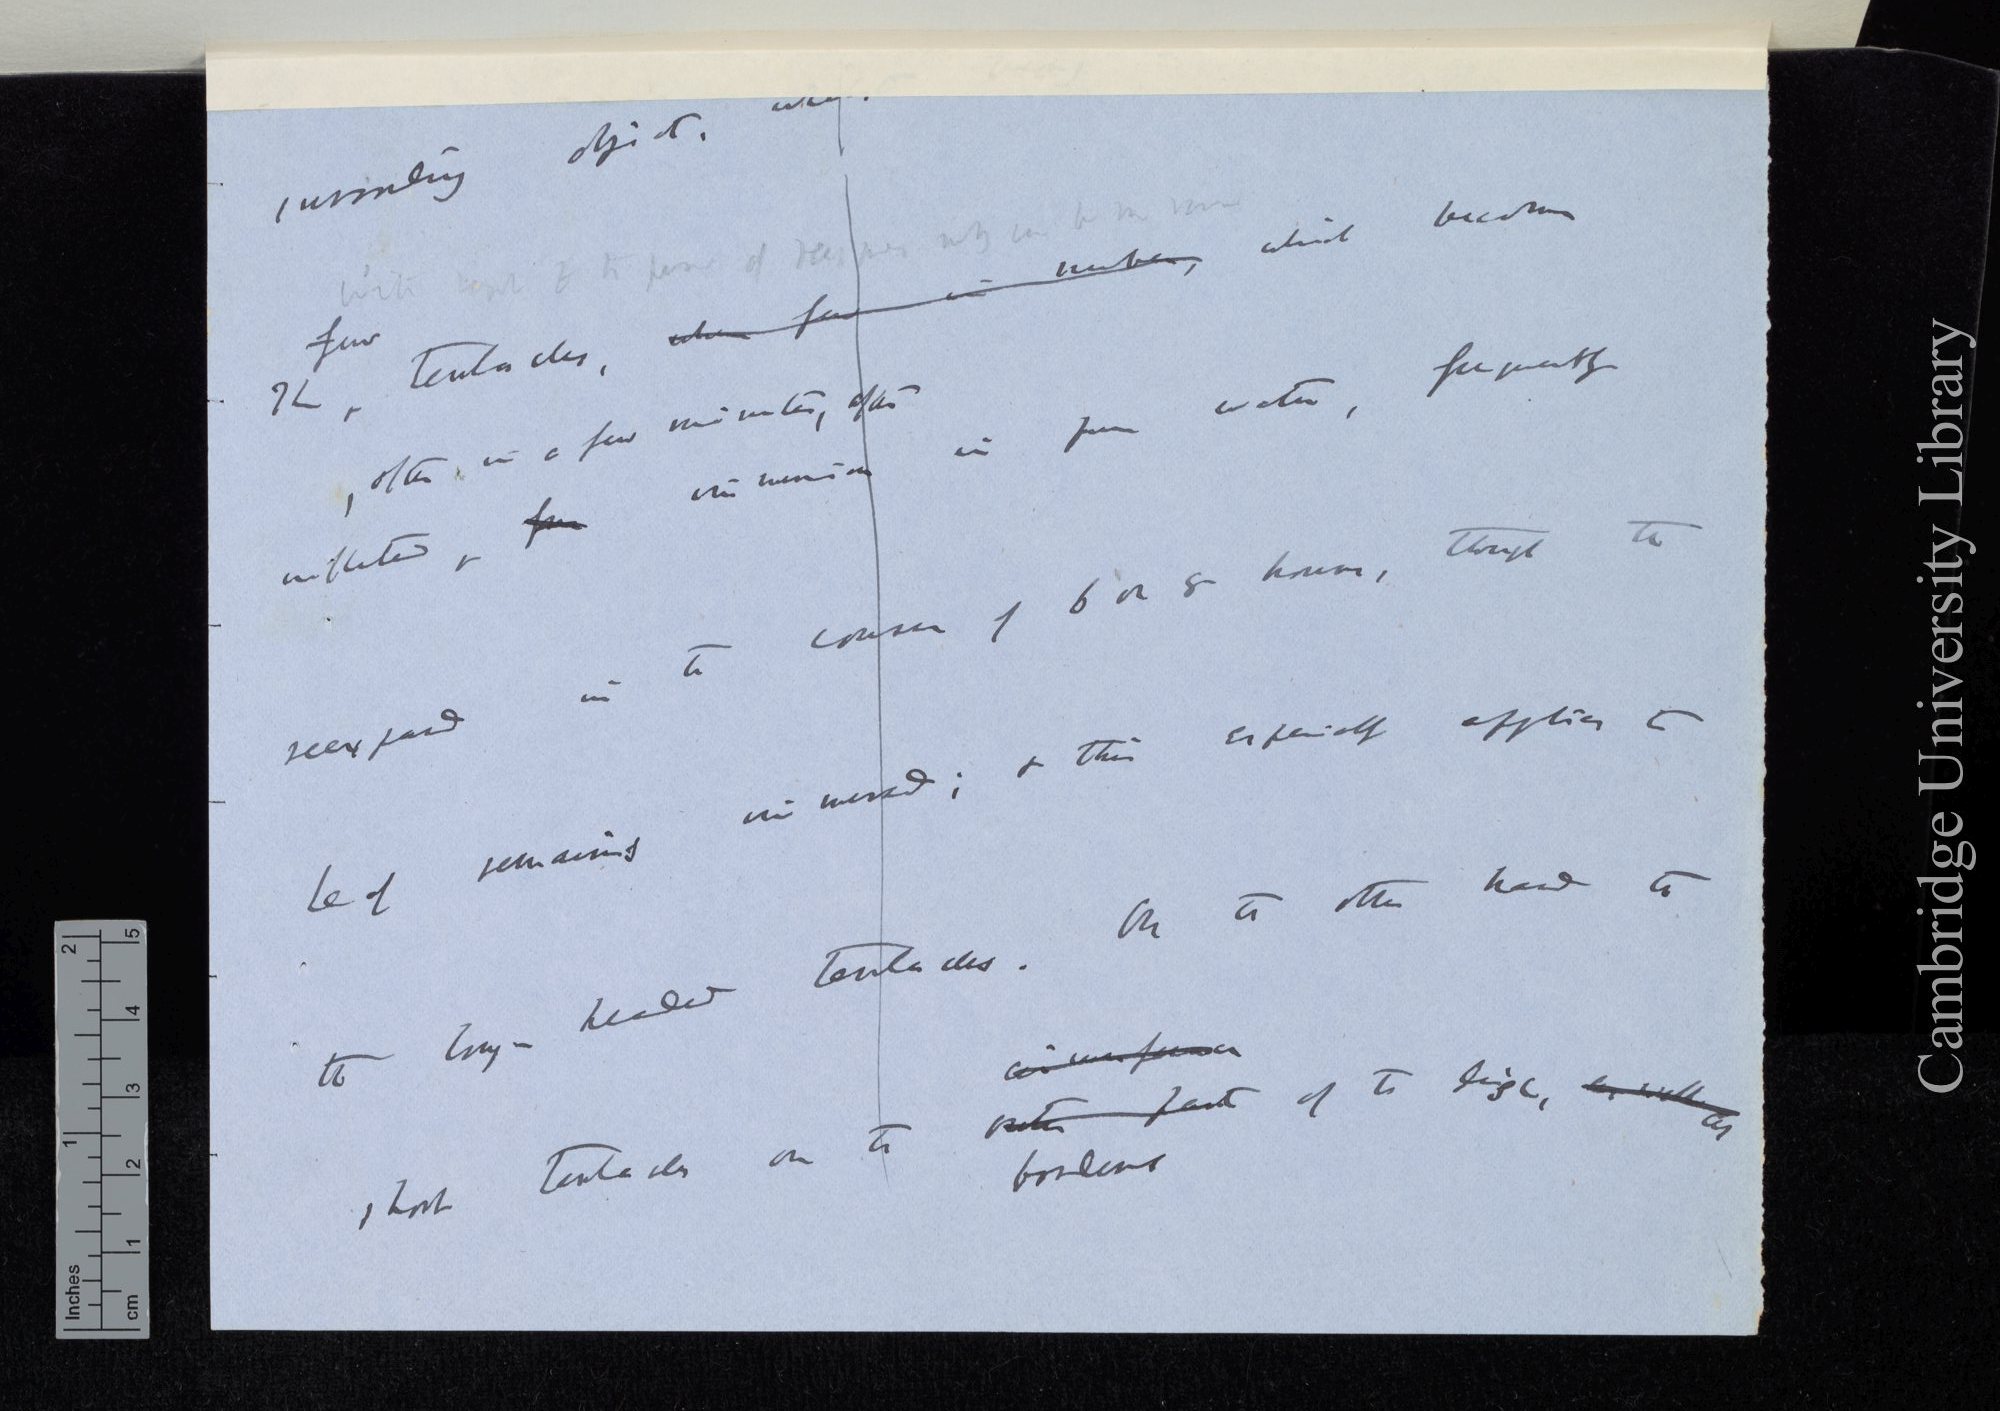 surrounding objects.
with
few
The tentacles, when few in number, which become
, often in a few minutes, after
inflected & from immersion in pure water, frequently
reexpand in the course of 6 or 8 hours, though the
leaf remains immersed; & this especially applies to
the long-headed tentacles. On the other hand the
circumference
short tentacles on the outer parts of the disc, as well as
borders
Cambridge University Library
Inches 1 2
cm 1 2 3 4 5